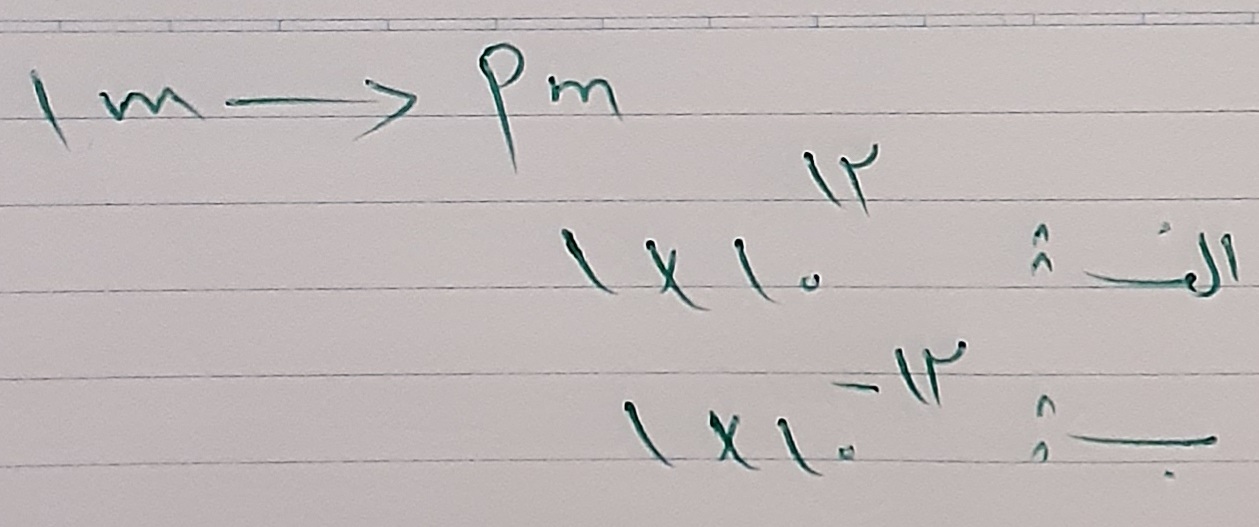 ۱ m → pm
الف: ۱ × ۱۰^۱۲
ب: ۱ × ۱۰^-۱۲